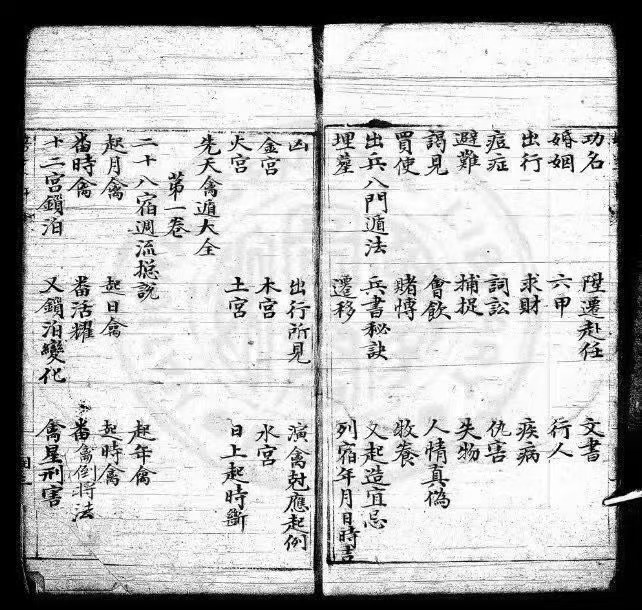 功名 陞遷赴任 文書
婚姻 六甲 行人
出行 求財 疾病
痘症 詞訟 仇害
避難 捕捉 失物
謁見 會飲 人情真偽
買使 賭博 收養
出兵八門遁法 兵書秘訣 又起造宜忌
埋塟 遷移 列宿年月日時吉
凶 出行所見 演禽尅應起例
金宮 木宮 水宮
火宮 土宮 日上起時斷
先天禽遁大全
第一卷
二十八宿週流總說 起年禽
起月禽 起日禽 起時禽
番時禽 番活耀 番禽倒將法
十二宮鎖泊 又鎖泊變化 禽星刑害